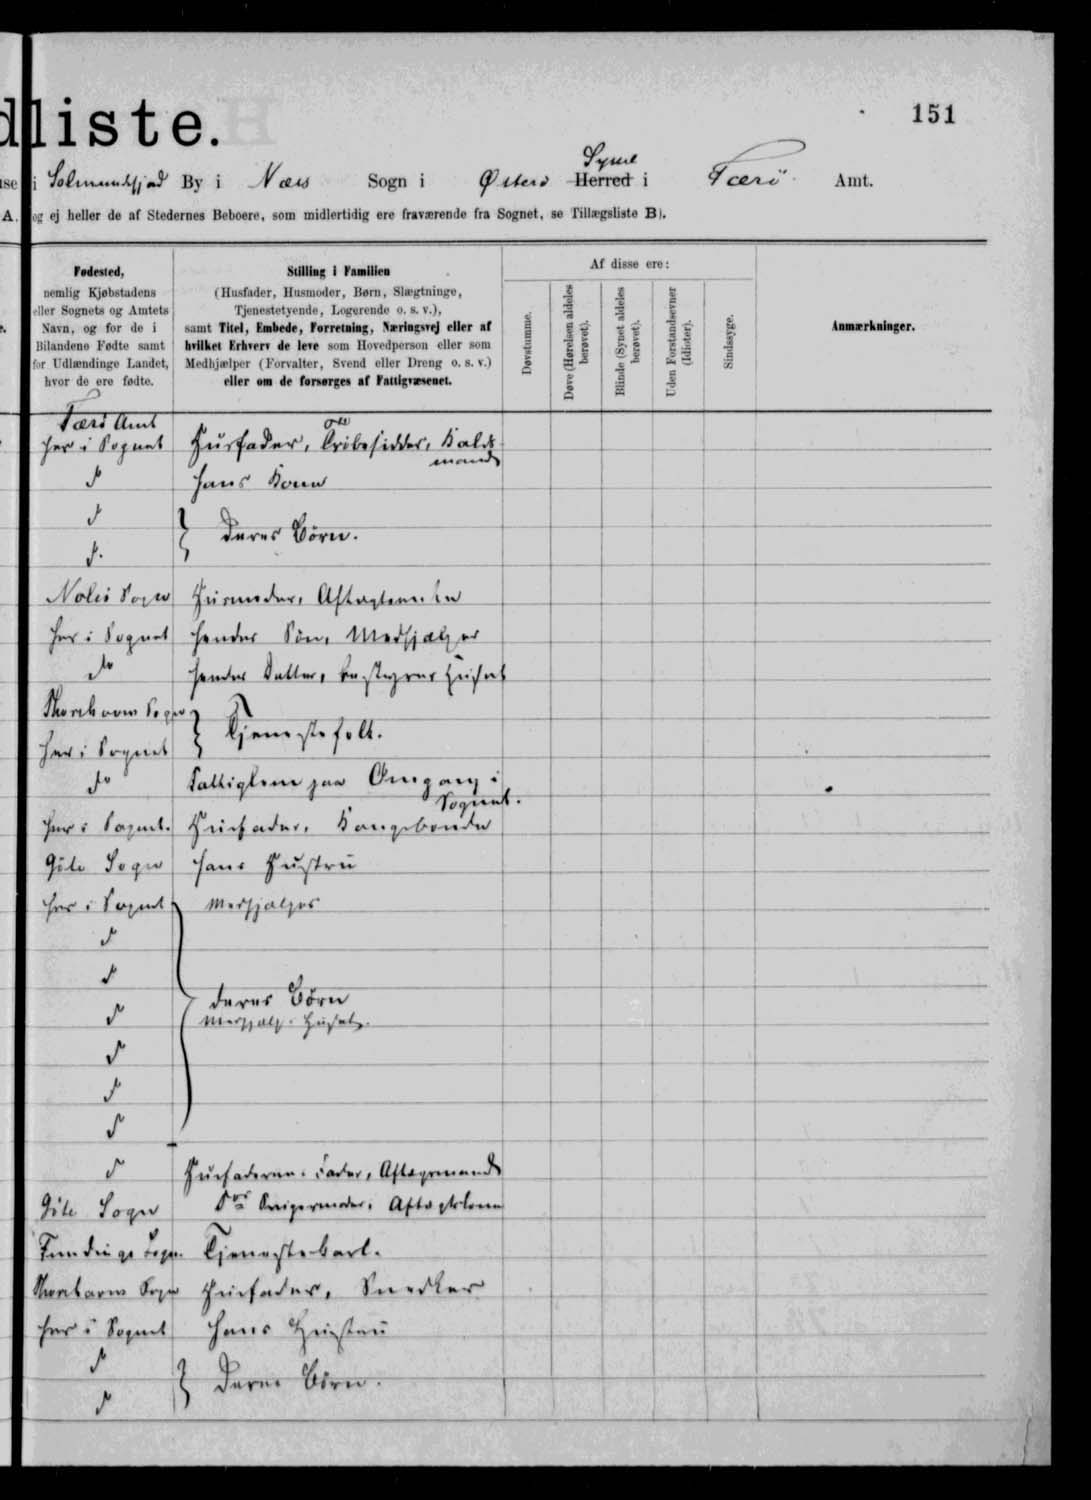 dliste.
151
se i Solmundefjord By i Næs Sogn i Østerø Herred Syssel i Færø Amt.
A. og ej heller de af Stedernes Beboere, som midlertidig ere fraværende fra Sognet, se Tillægsliste B).
Fødested,
nemlig Kjøbstadens
eller Sognets og Amtets
Navn, og for de i
Bilandene Fødte samt
for Udlændinge Landet,
hvor de ere fødte.
Stilling i Familien
(Husfader, Husmoder, Børn, Slægtninge,
Tjenestetyende, Logerende o. s. v.),
samt Titel, Embede, Forretning, Næringsvej eller af
hvilket Erhverv de leve som Hovedperson eller som
Medhjælper (Forvalter, Svend eller Dreng o. s. v.)
eller om de forsørges af Fattigvæsenet.
Af disse ere:
Døvstumme.
Døve (Hørelsen aldeles
berøvet).
Blinde (Synet aldeles
berøvet).
Uden Forstandsevner
(Idioter).
Sindssyge.
Anmærkninger.
Færø Amt
her i Sognet Husfader,
mand
do hans Kone
do
do deres Børn.
Nolsø Sogn Husmoder, Aftægtsenke
her i Sognet hendes Søn, Medhjælper
do hendes Datter, bestyrer Huset
Thorshavns Sogn
her i Sognet Tjenestefolk.
do Fattiglem paa Omgang i
Sognet.
her i Sognet. Husfader, Kongsbonde
Gøte Sogn hans Hustru
her i Sognet Medhjælper
do
do
do deres Børn
Medhjælp i Huset.
do
do
do
do Husfaderens Fader, Aftægtsmand
Gøte Sogn Do Svigermoder, Aftægtskone
Fundings Sogn. Tjenestekarl.
Thorshavns Sogn Husfader, Snedker
her i Sognet Hans Hustru
do
do Deres Børn.